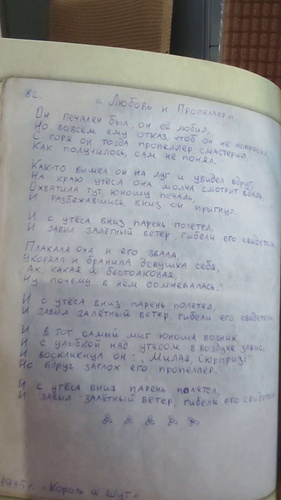 82.
"Любовь и Пропеллер".
Он печален был, он её любил,
Но во всём ему отказ, чтоб он не попросил
С горя он тогда пропеллер смастерил,
Как получилось, сам не понял.
Как-то вышел он на луг и увидел вдруг,
На краю утёса она молча смотрит вокруг,
Охватила тут юношу печаль,
И разбежавшись вниз он прыгнул.
И с утёса вниз парень полетел,
И завыл залётный ветер, гибели его свидетель
Плакала она и его звала,
Укоряла и бранила девушка себя,
Ах, какая я бестолковая,
Ну почему в нём сомневалась?
И с утёса вниз парень полетел,
И завыл залётный ветер, гибели его свидетель
И в тот самый миг юноша возник,
И с улыбкой над утёсом в воздухе завис,
И воскликнул он: "Милая, сюрприз!"
Но вдруг заглох его пропеллер.
И с утёса вниз парень полетел,
И завыл залётный ветер, гибели его свидетель
"Король и Шут"